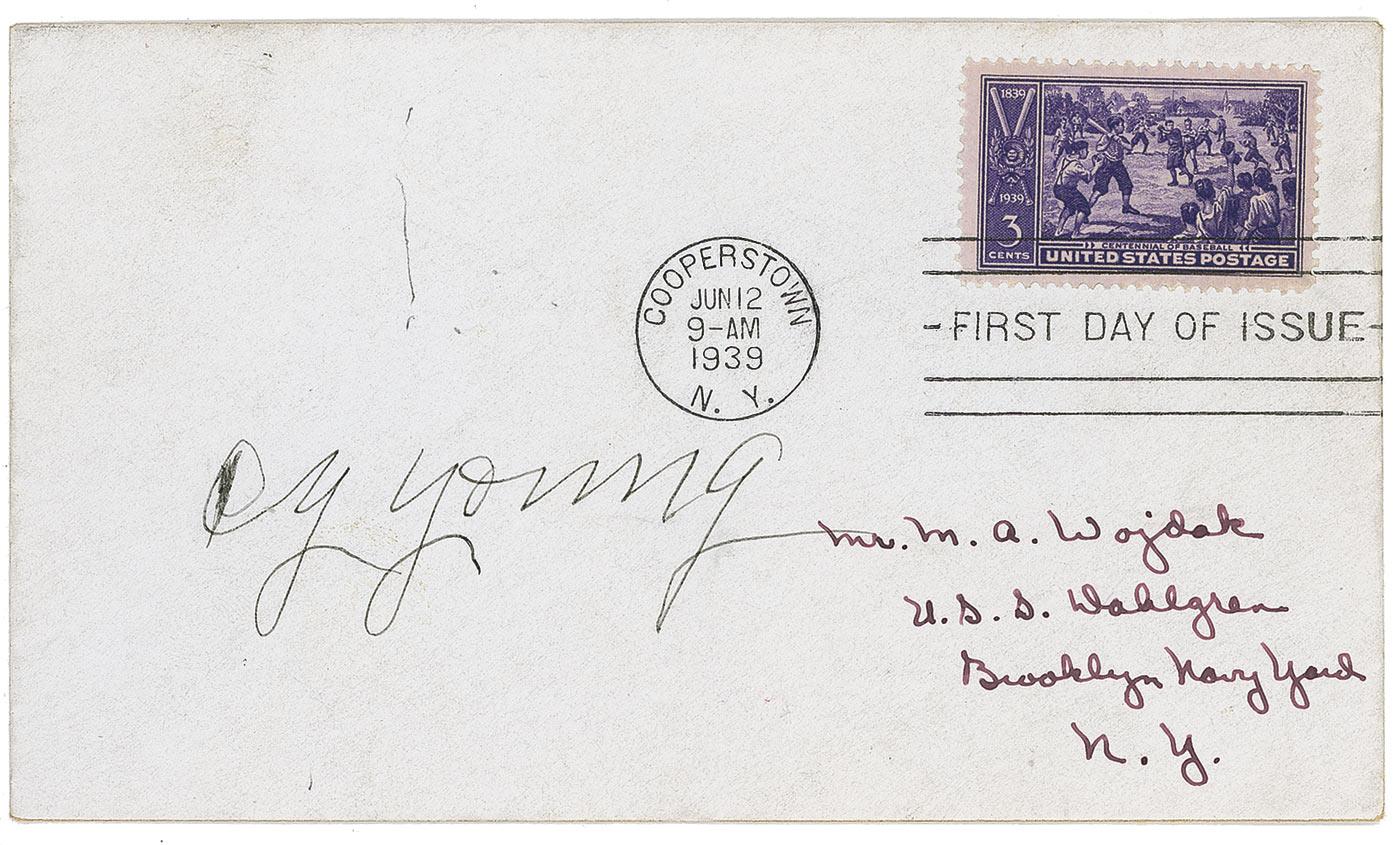 1839
1939
3
CENTS
CENTENNIAL OF BASEBALL
UNITED STATES POSTAGE
COOPERSTOWN
JUN 12
9-AM
1939
N. Y.
-FIRST DAY OF ISSUE-
Cy Young
Mr. M. A. Wojdak
U.S.S. Dahlgren
Brooklyn Navy Yard
N. Y.